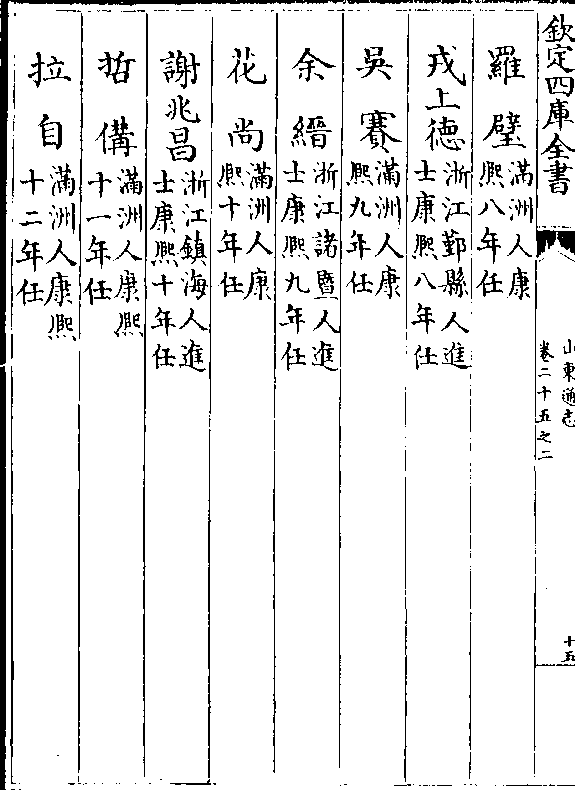 欽定四庫全書
山東通志
卷二十五之二
十五
羅璧 滿洲人康熙八年任
戎上德 浙江鄞縣人進士康熙八年任
吳賽 滿洲人康熙九年任
余縉 浙江諸暨人進士康熙九年任
花尚 滿洲人康熙十年任
謝兆昌 浙江鎮海人進士康熙十年任
哲備 滿洲人康熙十一年任
拉自 滿洲人康熙十二年任